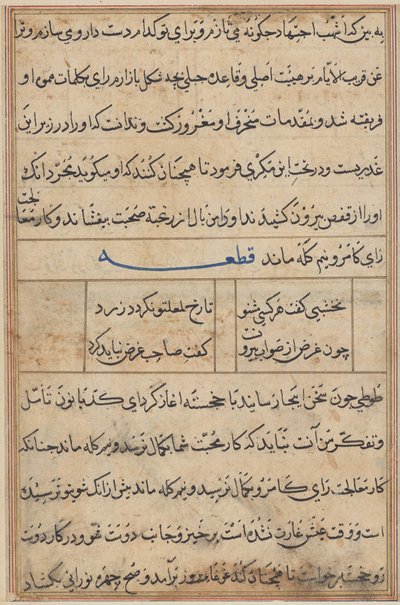 به بین که اشهب اجتهاد چگونه می تازم و برای تو کدام دست داروی سازم و ترا
عن قریب الایام بر هیئت اصلی و قاعده جبلی بچه شکل باز ارم رای بکلمات مموه او
فریفته شد و بمقدمات منحرف او مغرور کشت و ندانست که او را در زیر این
غدریست و در تحت این مکری فرمود تا همچنان کنند که او میکوید مجرد انک
او را از قفص بیرون کشیدند او این بال از رعبة صحبت بیفشاند و کار معالجت
رای کامرو نیم کله ماند قطعه
نخشبی کفت هر کسی شنو
تارخ لعلتو نکردد زرد
چون غرض از صواب بیرونست
کفت صاحب غرض نباید کرد
طوطی چون سخن اینجا رسانید با خجسته اغاز کرد ای کدبانو تامل
و تفکر من آنست نباید که کار محبت شما بکمال نرسد و نیم کله ماند چنانکه
کار معالجت رای کامرو بکمال نرسید و نیم کله ماند پیش از انک شوی تو نرسیده
است و ورقت عیش غارت نشده است برخیز و جانب دوست شو و در کار دوست
رو خجسته برخواست تا همچنان کند غوغاء روز برآمد و صبح چهره نورانی بکشاد